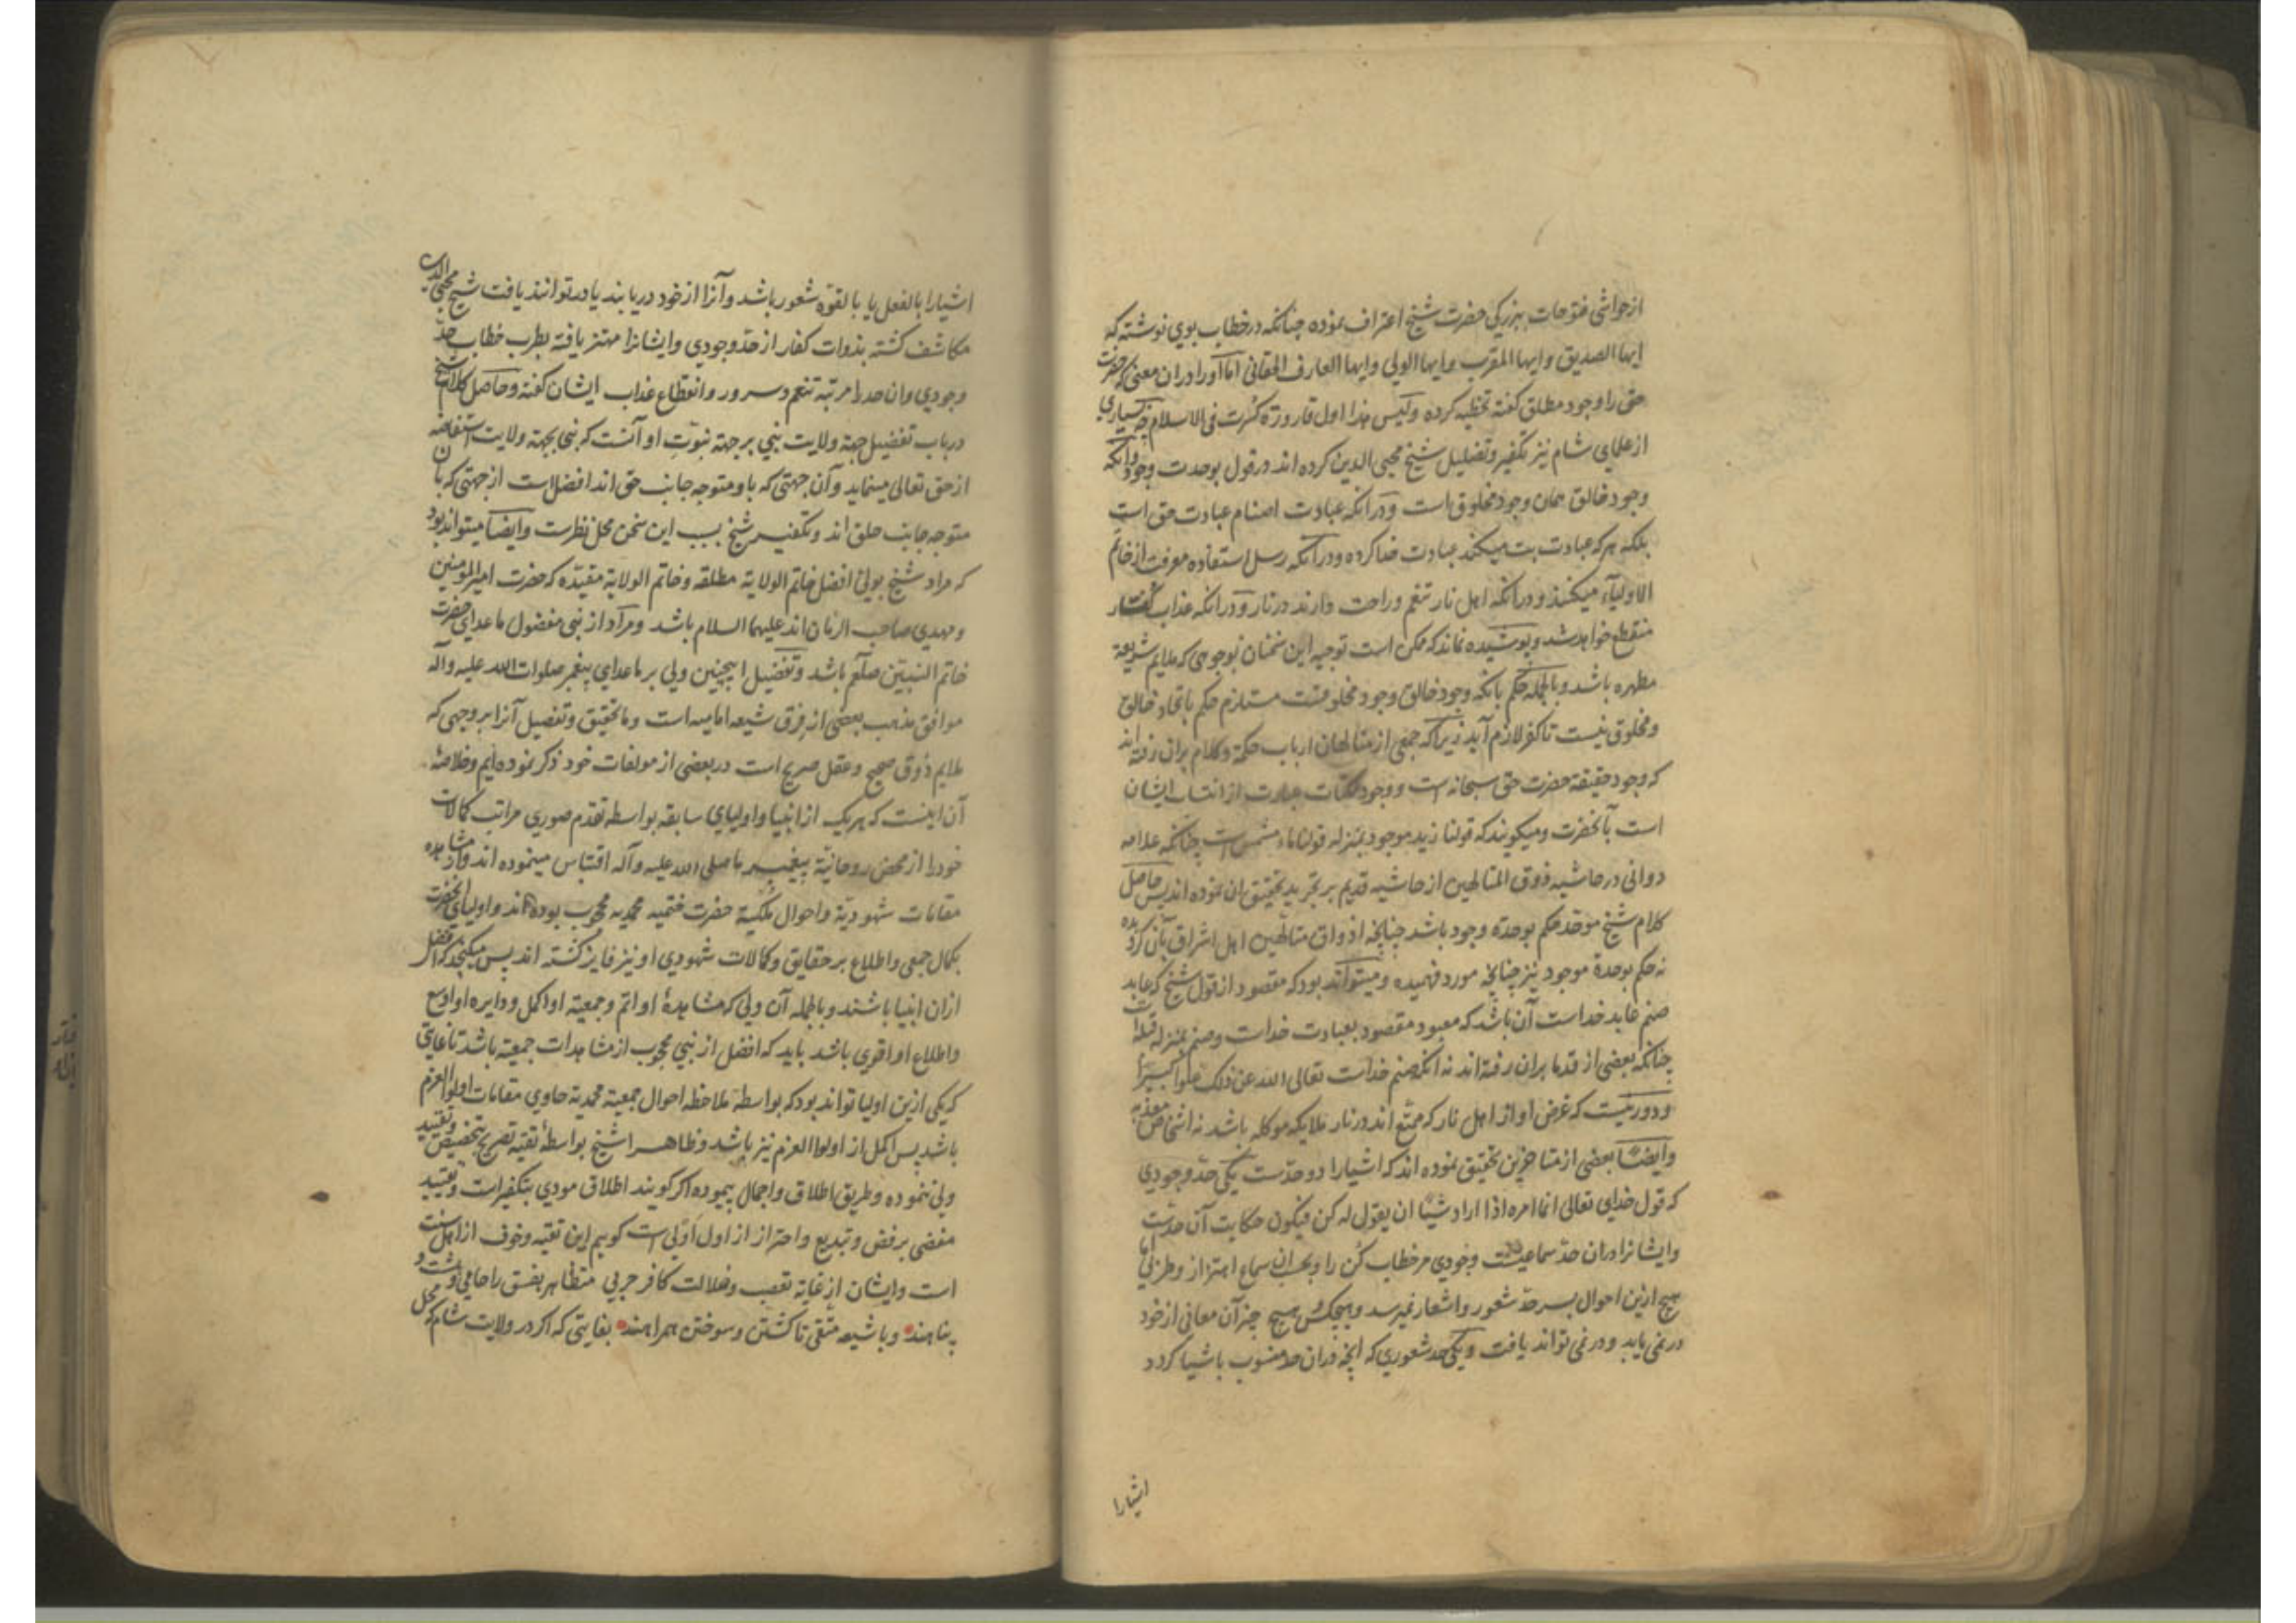 از حواشی فتوحات ببزرکی حضرت شیخ اعتراف نموده چنانکه در خطاب بوی نوشته که
ایها الصدیق وایها المقرب وایها الولی وایها العارف الحقانی اما او را در ان معنی که حضرت
حق را وجود مطلق کفته تخطیه کرده ولیس هذا اول قارورة کسرت فی الاسلام چه بسیاری
از علمای شام نیز تکفیر وتضلیل شیخ محیی الدین کرده اند در قول بوحدت وجود وانکه
وجود خالق همان وجود مخلوق است و در انکه عبادت اصنام عبادت حق است
بلکه هر که عبادت بت میکند عبادت خدا کرده و در آنکه رسل استفاده معرفت از خاتم
الاولیآء میکنند و در انکه اهل نار تنعم وراحت دارند در نار و در انکه عذاب کفار
منقطع خواهد شد وپوشیده نماند که ممکن است توجیه این سخنان بوجوهی که ملایم شریعة
مطهره باشد وبالجمله حکم بانکه وجود خالق وجود مخلوقست مستلزم حکم باتحاد خالق
ومخلوق نیست تا کفر لازم آید زیرا که جمعی از متالهان ارباب حکمة وکلام بران رفته اند
که وجود حقیقة حضرت حق سبحانه است و وجود ممکنات عبارت از انتساب ایشان
است بآنحضرت ومیکویند که قولنا زید موجود بمنزله قولنا ماء مشمس است چنانکه علامه
دوانی در حاشیه ذوق المتالهین از حاشیه قدیم بر تجرید تحقیق ان نموده اند پس حاصل
کلام شیخ موحد حکم بوحدة وجود باشد چنانچه اذواق متألهین اهل اشراق بآن کرویده
نه حکم بوحدة موجود نیز چنانچه مورد فهمیده ومیتواند بود که مقصود از قول شیخ که عابد
صنم عابد خداست آن باشد که معبود مقصود بعبادت خداست وصنم بمنزله قبله است
چنانکه بعضی از قدما بران رفته اند نه انکه صنم خداست تعالی الله عن ذلک علوا کبیرا
ودور نیست که غرض او از اهل نار که متمتع اند در نار ملایکه موکله باشد نه اشخاص معذبه
وایضا بعضی از متاخرین تحقیق نموده اند که اشیا را دو حدّست یکی حدّ وجودی
که قول خدای تعالی انما امره اذا اراد شیئا ان یقول له کن فیکون حکایت آن حدّست
وایشانرا دران حدّ سماعیست وجودی مر خطاب کُن را وبحسب ان سماع اهتزاز وطربی اما
هیچ ازین احوال بسرحدّ شعور واشعار نمیرسد وهیچکس هیچ چیز آن معانی از خود
در نمی یابد ودر نمی تواند یافت ویکی حد شعوری که انچه دران حد منسوب باشیا کردد
اشیا را
اشیا را بالفعل یا بالقوّه شعور باشد وآنرا از خود دریابند یا در توانند یافت شیخ محیی الدین
مکاشف کشته بذوات کفار از حدّ وجودی وایشانرا مهتز یافته بطرب خطاب حدّ
وجودی وان حد را مرتبه تنعم وسرور وانقطاع عذاب ایشان کفته وحاصل کلام شیخ
در باب تفضیل جهة ولایت نبی بر جهة نبوّت او آنست که نبی بجهة ولایت استفاضه
از حق تعالی مینماید وآن جهتی که باو متوجه جانب حق اند افضل است از جهتی که بان
متوجه جانب خلق اند وتکفیر شیخ بسبب این سخن محل نظرست وایضا میتواند بود
که مراد شیخ بولیّ افضل خاتم الولایة مطلقه وخاتم الولایة مقیدّه که حضرت امیرالمومنین
ومهدی صاحب الزمان اند علیهما السلام باشد ومراد از نبی مفضول ماعدای حضرت
خاتم النبیین صلعم باشد وتفضیل اینچنین ولی بر ماعدای پیغمبر صلوات الله علیه وآله
موافق مذهب بعضی از فرق شیعه امامیه است وما تحقیق وتفصیل آنرا بر وجهی که
ملایم ذوق صحیح وعقل صریح است در بعضی از مولفات خود ذکر نموده ایم وخلاصه
آن اینست که هر یک از انبیا واولیای سابقه بواسطه تقدم صوری مراتب کمالات
خود را از محض روحانیة پیغمبر ما صلی الله علیه وآله اقتباس مینموده اند واز مشاهده
مقامات شهودیّة واحوال ملکیة حضرت ختمیه محمدیه محجوب بوده اند واولیای انحضرت
بکمال جمعی واطلاع بر حقایق وکمالات شهودی او نیز فایز کشته اند پس میکنجد که افضل
ازان انبیا باشند وبالجمله آن ولی که مشاهدهٔ او اتم وجمعیة او اکمل ودایره او اوسع
واطلاع او اقوی باشد باید که افضل از نبیّ محجوب از مشاهدات جمعیه باشد تا غایتی
که یکی ازین اولیا تواند بود که بواسطهٔ ملاحظه احوال جمعیة محمدیه حاوی مقامات اولوا العزم
باشد پس اکمل از اولوا العزم نیز باشد وظاهرا شیخ بواسطهٔ تقیّه تصریح بتخصیص وتقیید
ولی ننموده وطریق اطلاق واجمال پیموده اکر کویند اطلاق مودی بتکفیر است وتقیید
مفضی برفض وتبدیع واحتراز از اول اولی است کوییم این تقیه وخوف از اهل سنت
است وایشان از غایة تعصب وضلالت کافر حربی متظاهر بفسق را حامی و پشت و
پناهند وبا شیعه متقی تا کشتن وسوختن همراهند بغایتی که اکر در ولایت شام که محل